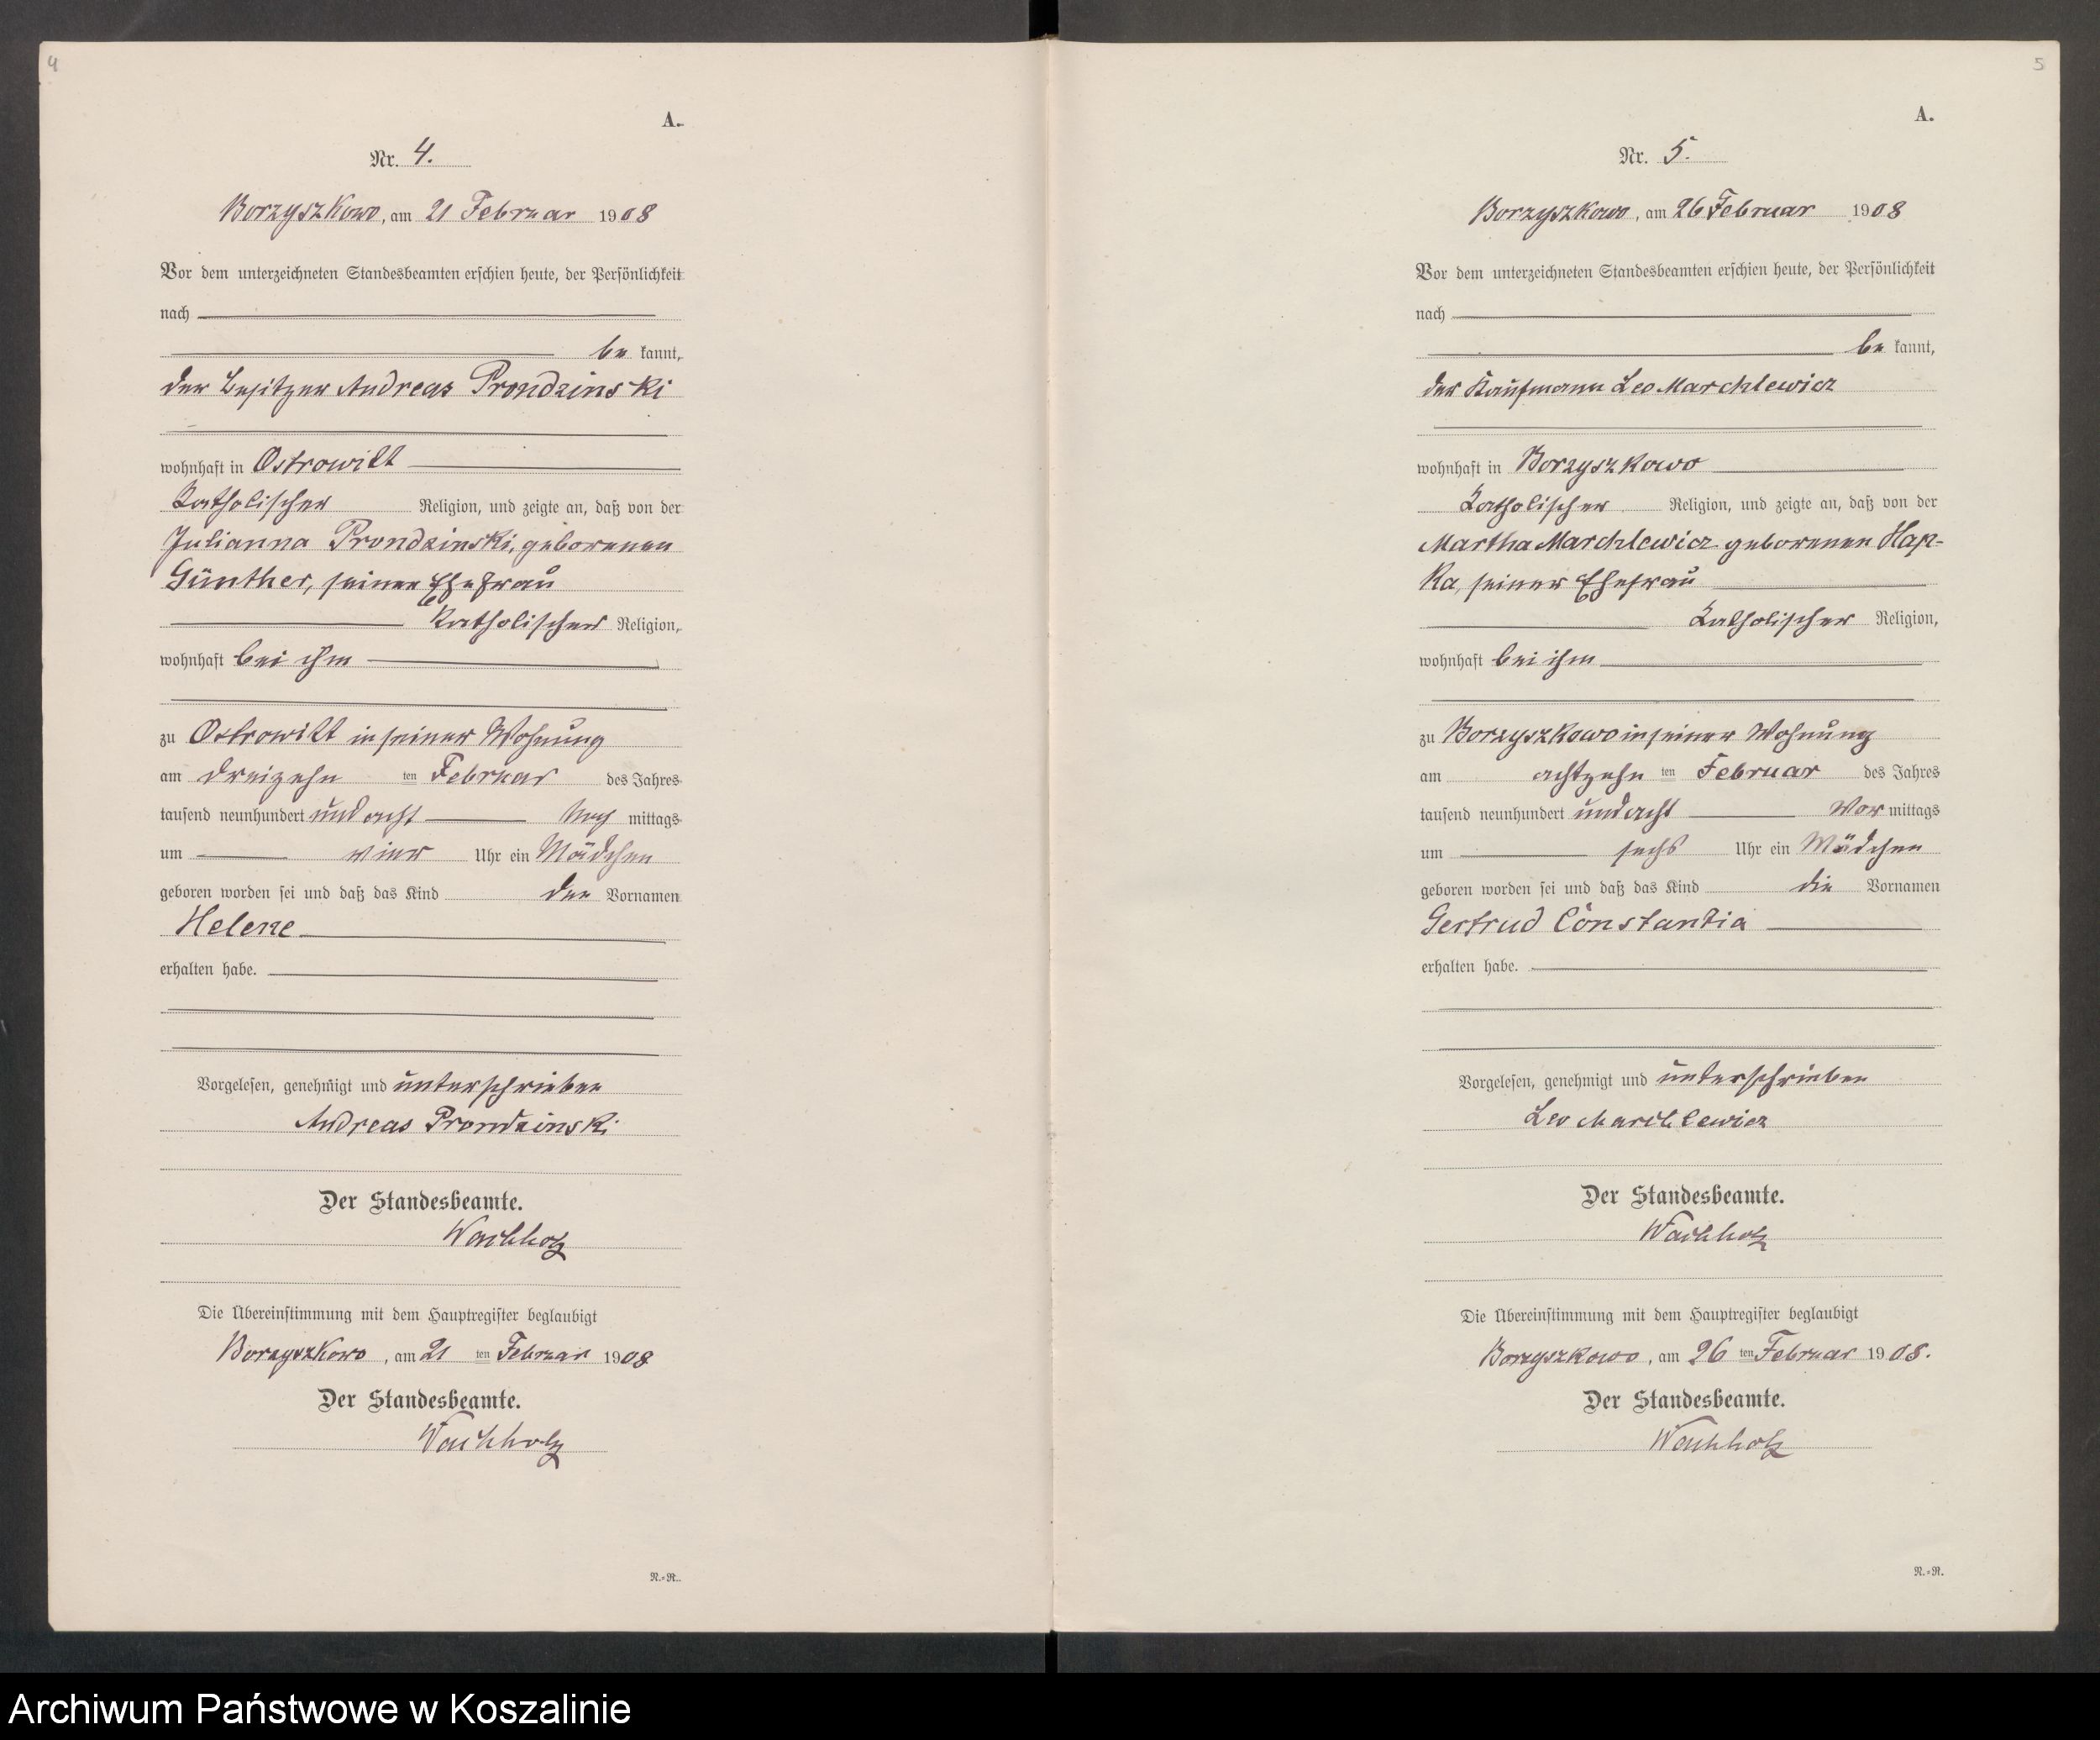 4
A.
Nr. 4.
Borzyszkowo, am 21 Februar 1908
Vor dem unterzeichneten Standesbeamten erschien heute, der Persönlichkeit
nach
be kannt,
der Besitzer Andreas Prondzinski
wohnhaft in Ostrowitt
Katholischer Religion, und zeigte an, daß von der
Julianna Prondzinski, geborenen
Günther, seiner Ehefrau
Katholischer Religion,
wohnhaft bei ihm
zu Ostrowitt in seiner Wohnung
am dreizehn ten Februar des Jahres
tausend neunhundert und acht Nach mittags
um vier Uhr ein Mädchen
geboren worden sei und daß das Kind den Vornamen
Helene
erhalten habe.
Vorgelesen, genehmigt und unterschrieben
Andreas Prondzinski
Der Standesbeamte.
Wachholz
Die Übereinstimmung mit dem Hauptregister beglaubigt
Borzyszkowo, am 21 ten Februar 1908
Der Standesbeamte.
Wachholz
N.=R.
5
A.
Nr. 5.
Borzyszkowo, am 26 Februar 1908
Vor dem unterzeichneten Standesbeamten erschien heute, der Persönlichkeit
nach
be kannt,
der Kaufmann Leo Marchlewicz
wohnhaft in Borzyszkowo
Katholischer Religion, und zeigte an, daß von der
Martha Marchlewicz geborenen Hap-
ka, seiner Ehefrau
Katholischer Religion,
wohnhaft bei ihm
zu Borzyszkowo in seiner Wohnung
am achtzehn ten Februar des Jahres
tausend neunhundert und acht Vor mittags
um sechs Uhr ein Mädchen
geboren worden sei und daß das Kind die Vornamen
Gertrud Constantia
erhalten habe.
Vorgelesen, genehmigt und unterschrieben
Leo Marchlewicz
Der Standesbeamte.
Wachholz
Die Übereinstimmung mit dem Hauptregister beglaubigt
Borzyszkowo, am 26 ten Februar 1908.
Der Standesbeamte.
Wachholz
N.=R.
Archiwum Państwowe w Koszalinie